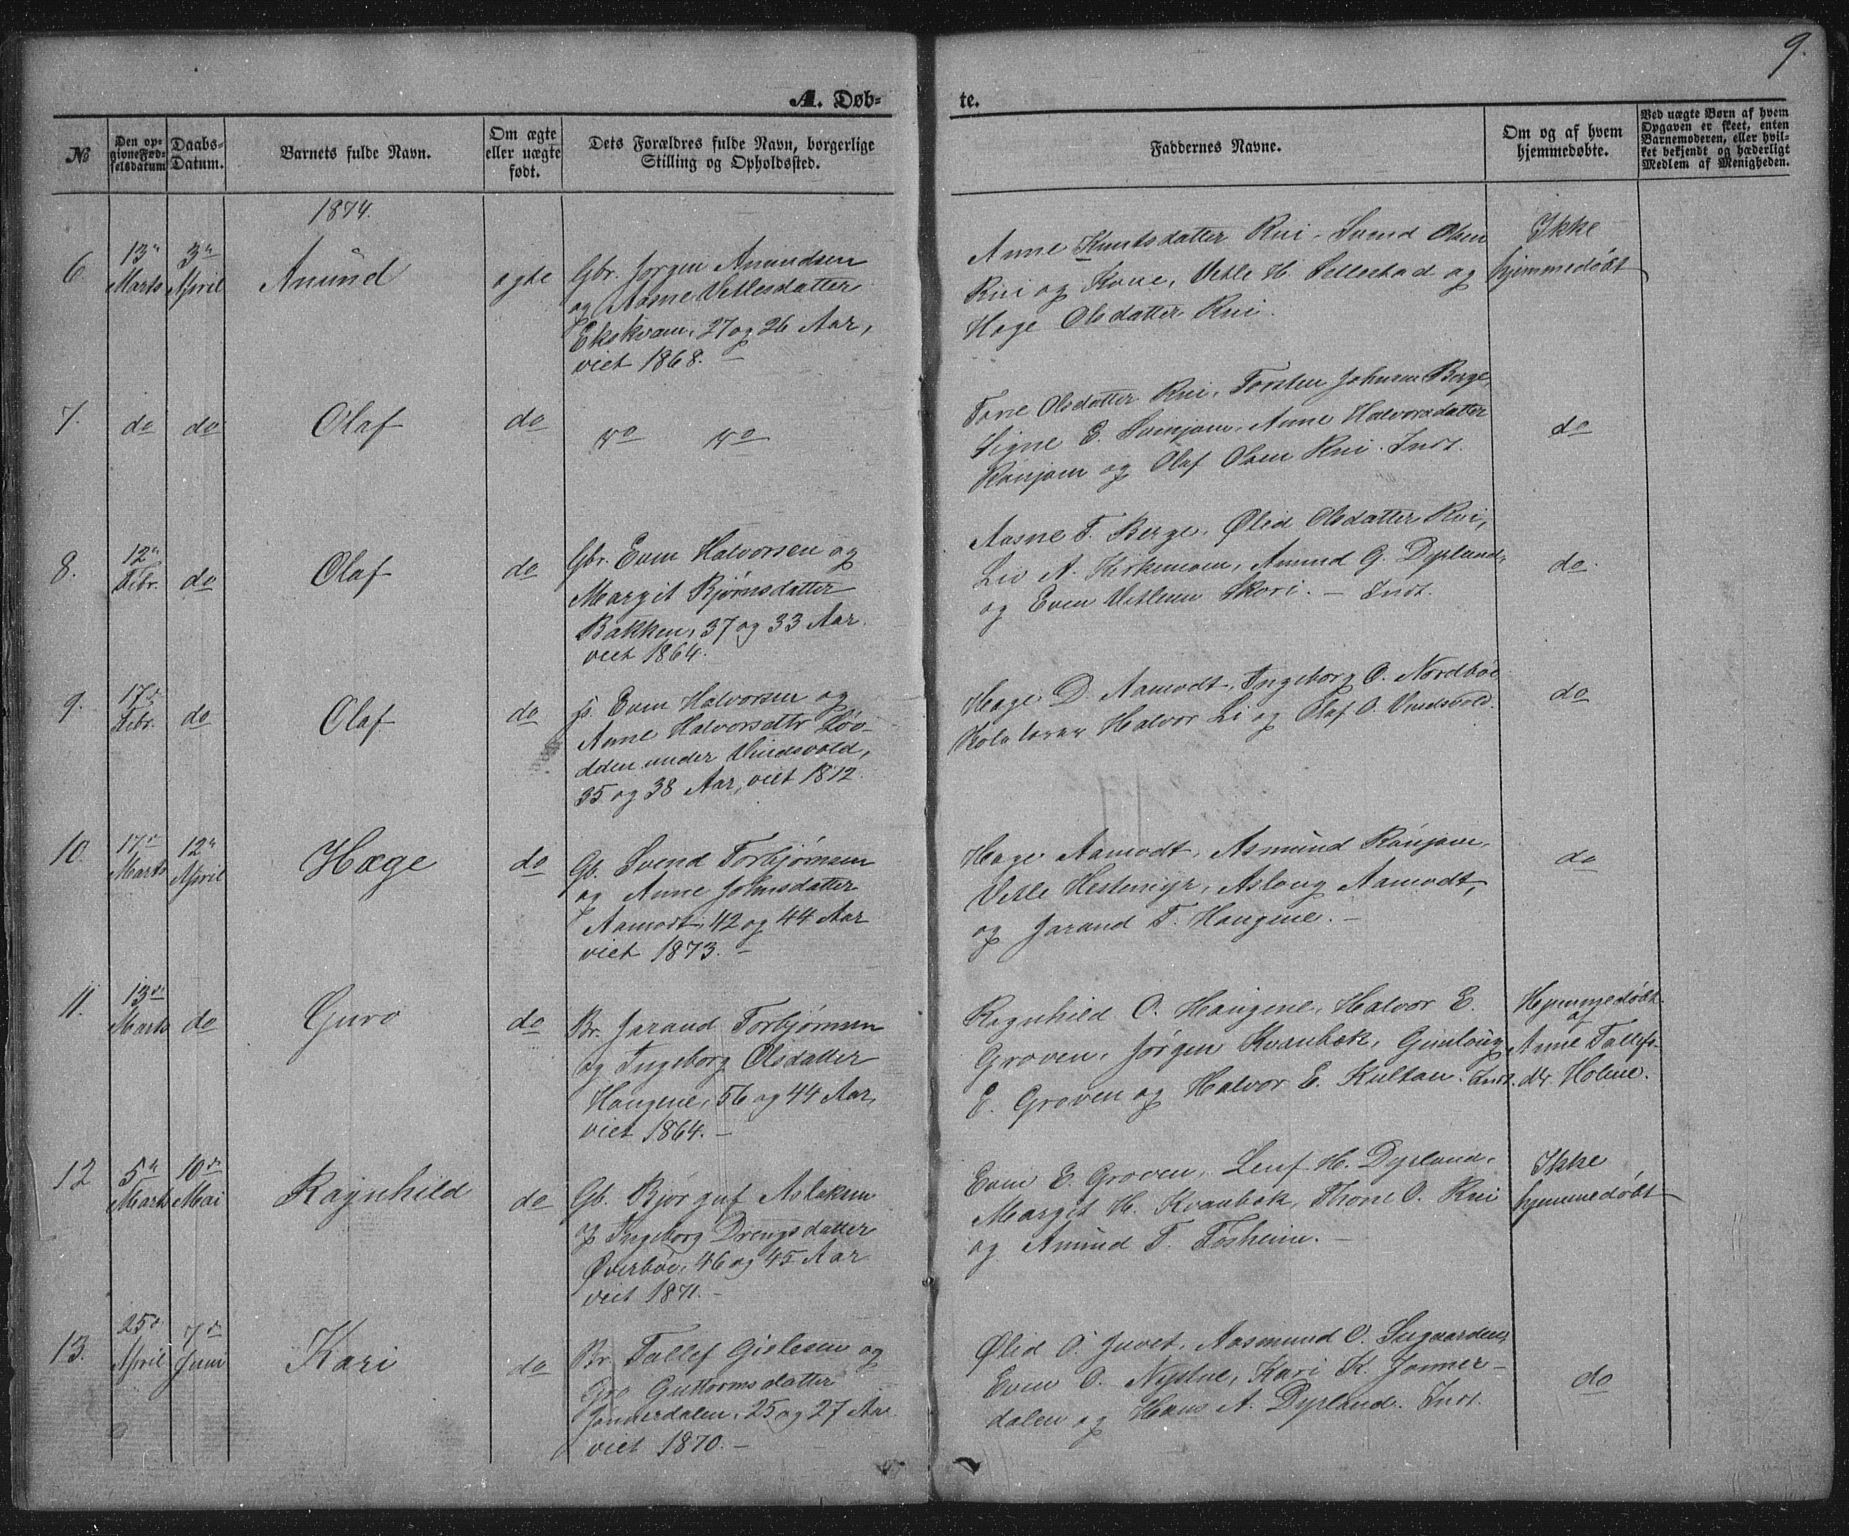 9.
A. Døb-
te.
№
Den op-
givne Fød-
selsdatum
Daabs-
Datum.
Barnets fulde Navn.
Om ægte
eller uægte
født.
Dets Forældres fulde Navn, borgerlige
Stilling og Opholdssted.
Faddernes Navne.
Om og af hvem
hjemmedøbte.
Ved uægte Børn af hvem
Opgaven er skeet, enten
Barnemoderen, eller hvil-
ket bekjendt og hæderligt
Medlem af Menigheden.
1874.
6
13de
Marts
3de
April
Amund
ægte
Gbr. Jørgen Amundsen
og Aasne Vetlesdatter
Ekskvam, 27 og 26 Aar,
viet 1868. —
Anne Knutsdatter Rui, Svend Olsen
Rui og Kone, Vetle H. Sellestad og
Hæge Olsdatter Rui.
Ikke
hjemmedøbt
7.
do
do
Olaf
do
do do
Tone Olsdatter Rui, Torsten Johnsen Berge,
Signe E. Sumjom, Anne Halvorsdatter
Rønjom og Olaf Olsen Rui. Indt.
do
8.
12te
Febr.
do
Olaf
do
Gbr. Even Halvorsen og
Margit Bjørnsdatter
Bakken, 37 og 33 Aar.
viet 1864.
Aasne T. Berge, Ølid Olsdatter Rui,
Liv A. Kirkemoen, Amund G. Dyrland,
og Even Vetlesen Skori. — Indt.
do.
9.
17de
Febr.
do
Olaf
do
p. Even Halvorsen og
Anne Halvorsdttr Lød-
dden under Vindsvold,
35 og 38 Aar, viet 1872.
Hæge D. Aamodt, Ingeborg O. Nordbøe
Halvor Li og Olaf O. Vindsvold.
do
10.
17de
Marts
12te
April
Hæge
do
Gb. Svend Torbjørnsen
og Anne Johnsdatter
Aamodt, 42 og 44 Aar
viet 1873. —
Hæge Aamodt, Asmund Rønjom,
Vetle Hestemyr, Aslaug Aamodt,
og Jarand T. Haugene. —
do
11.
13de
Marts
do
Guro
do
Br. Jarand Torbjørnsen
og Ingeborg Olsdatter
Haugene, 56 og 44 Aar,
viet 1864. —
Ragnhild O. Haugene, Halvor E.
Groven, Jørgen Kvanbæk, Gunloug
E. Groven og Halvor E. Kultan. Indt.
Hjemmedøbt
af
Anne Tallefs-
dtr Holme.
12
5te
Marts
10de
Mai
Ragnhild
do
Gb. Bjørguf Aslaksen
og Ingeborg Drengsdatter
Øverbøe, 46 og 45 Aar
viet 1871. —
Even E. Groven, Leuf H. Dyrland,
Margit H. Kvanbæk, Thone O. Rui
og Amund T. Tosheim. —
Ikke
hjemmedøbt
13.
25de
April
7de
Juni
Kari
do
Br. Tallef Gislesen og
Gro Guttormsdatter
Jønnerdalen, 25 og 27 Aar
viet 1870. —
Ølid O. Juvet, Aasmund O. Sugaarden,
Even O. Nystue, Kari K. Jønner-
dalen og Hans A. Dyrland. Indt.
do